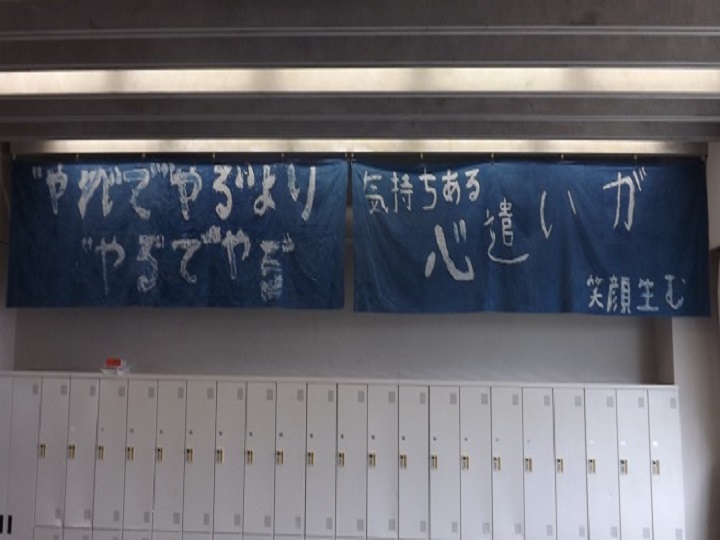 "やれ"で"やる"より
"やる"で"やる"
気持ちある
心遣いが
笑顔生む